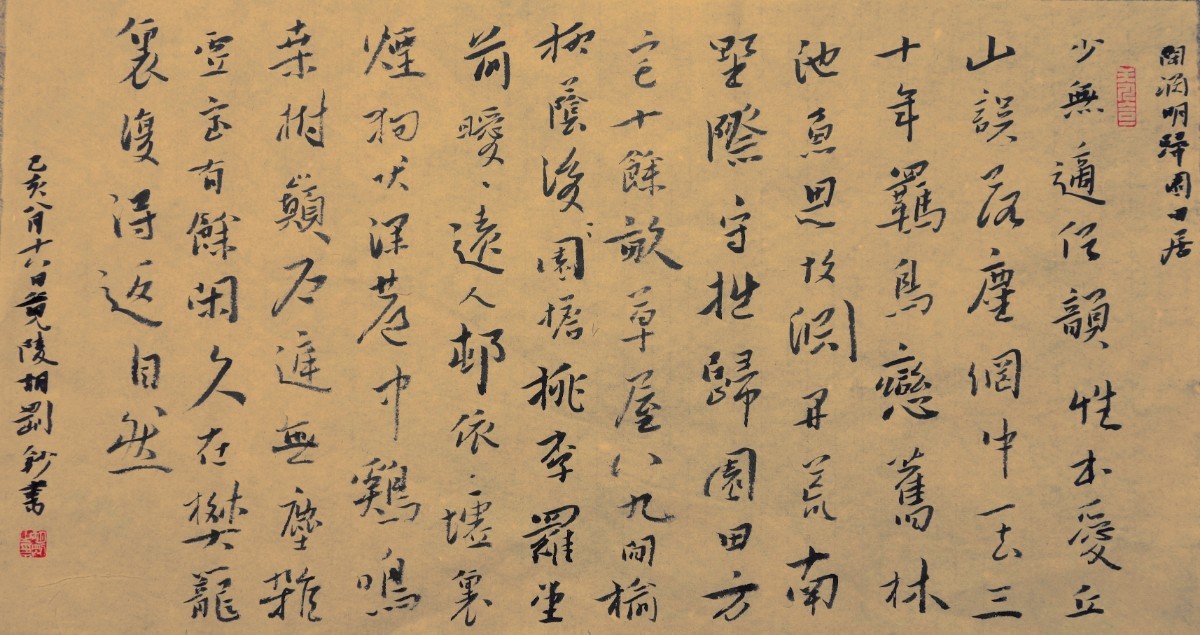 陶淵明歸園田居
少無適俗韻性本愛丘
山誤落塵網中一去三
十年羈鳥戀舊林
池魚思故淵開荒南
野際守拙歸園田方
宅十餘畝草屋八九間榆
柳蔭後園檐桃李羅堂
前曖々遠人邨依々墟裏
煙狗吠深巷中鷄鳴
桑樹顛戶庭無塵雜
虛室有餘閑久在樊籠
裏復得返自然
己亥八月十六日陵胡劉鈔書